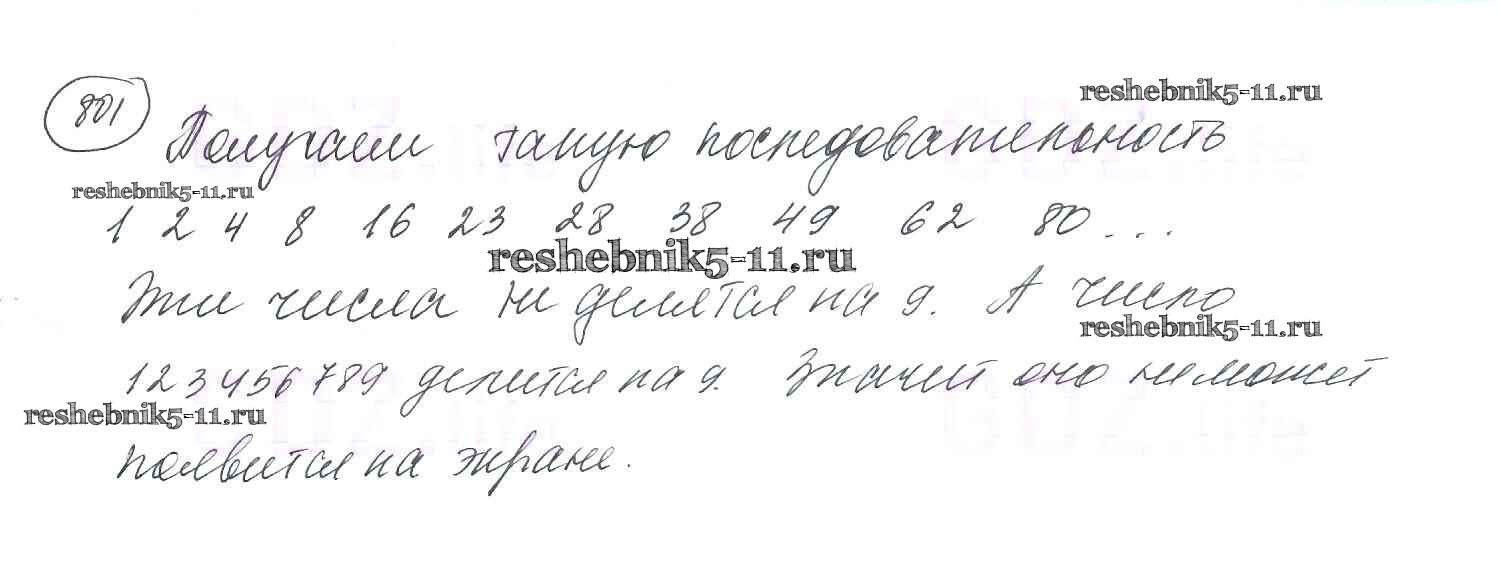 801
reshebnik5-11.ru
Получаем такую последовательность
reshebnik5-11.ru
1 2 4 8 16 23 28 38 49 62 80 ...
reshebnik5-11.ru
Эти числа не делятся на 9. А число
reshebnik5-11.ru
123456789 делится на 9. Значит оно не может
reshebnik5-11.ru
появится на экране.